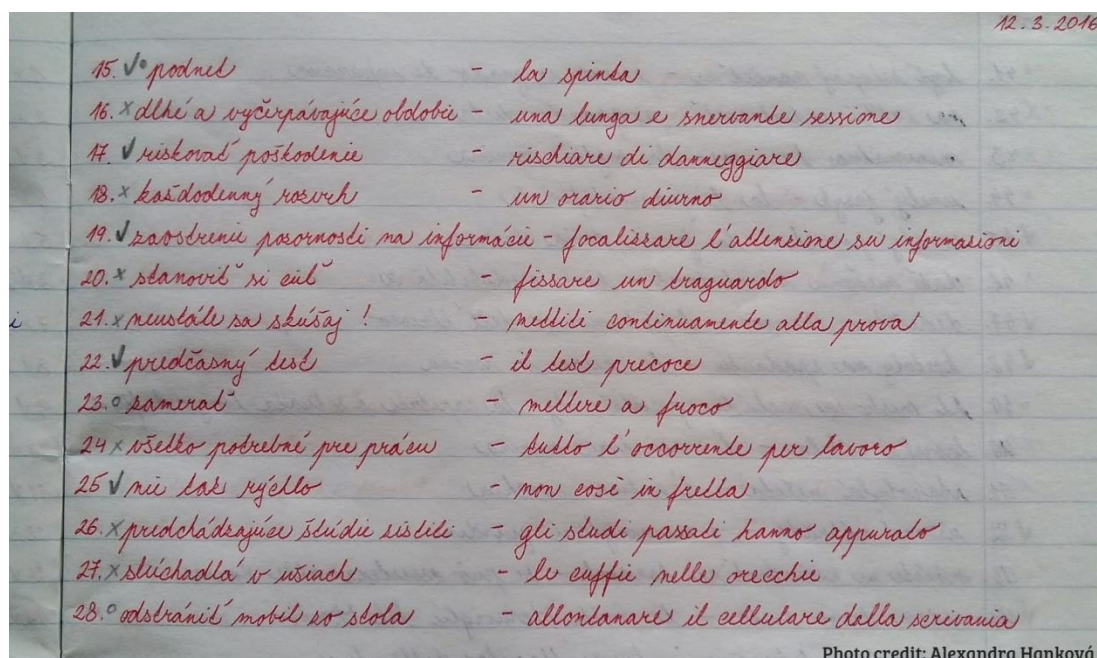 12. 3. 2016
15. ✓° podnet - la spinta
16. × dlhé a vyčerpávajúce obdobie - una lunga e snervante sessione
17. ✓ riskovať poškodenie - rischiare di danneggiare
18. × každodenný rozvrh - un orario diurno
19. ✓ zaostrenie pozornosti na informácie - focalizzare l'attenzione su informazioni
20. × stanoviť si cieľ - fissare un traguardo
i
21. × neustále sa skúšaj ! - mettiti continuamente alla prova
22. ✓ predčasný test - il test precoce
23. ° zamerať - mettere a fuoco
24 × všetko potrebné pre prácu - tutto l'occorrente per lavoro
25 ✓ nie tak rýchlo - non così in fretta
26. × predchádzajúce štúdie zistili - gli studi passati hanno appurato
27. × slúchadlá v ušiach - le cuffie nelle orecchie
28. ° odstrániť mobil zo stola - allontanare il cellulare dalla scrivania
Photo credit: Alexandra Hanková